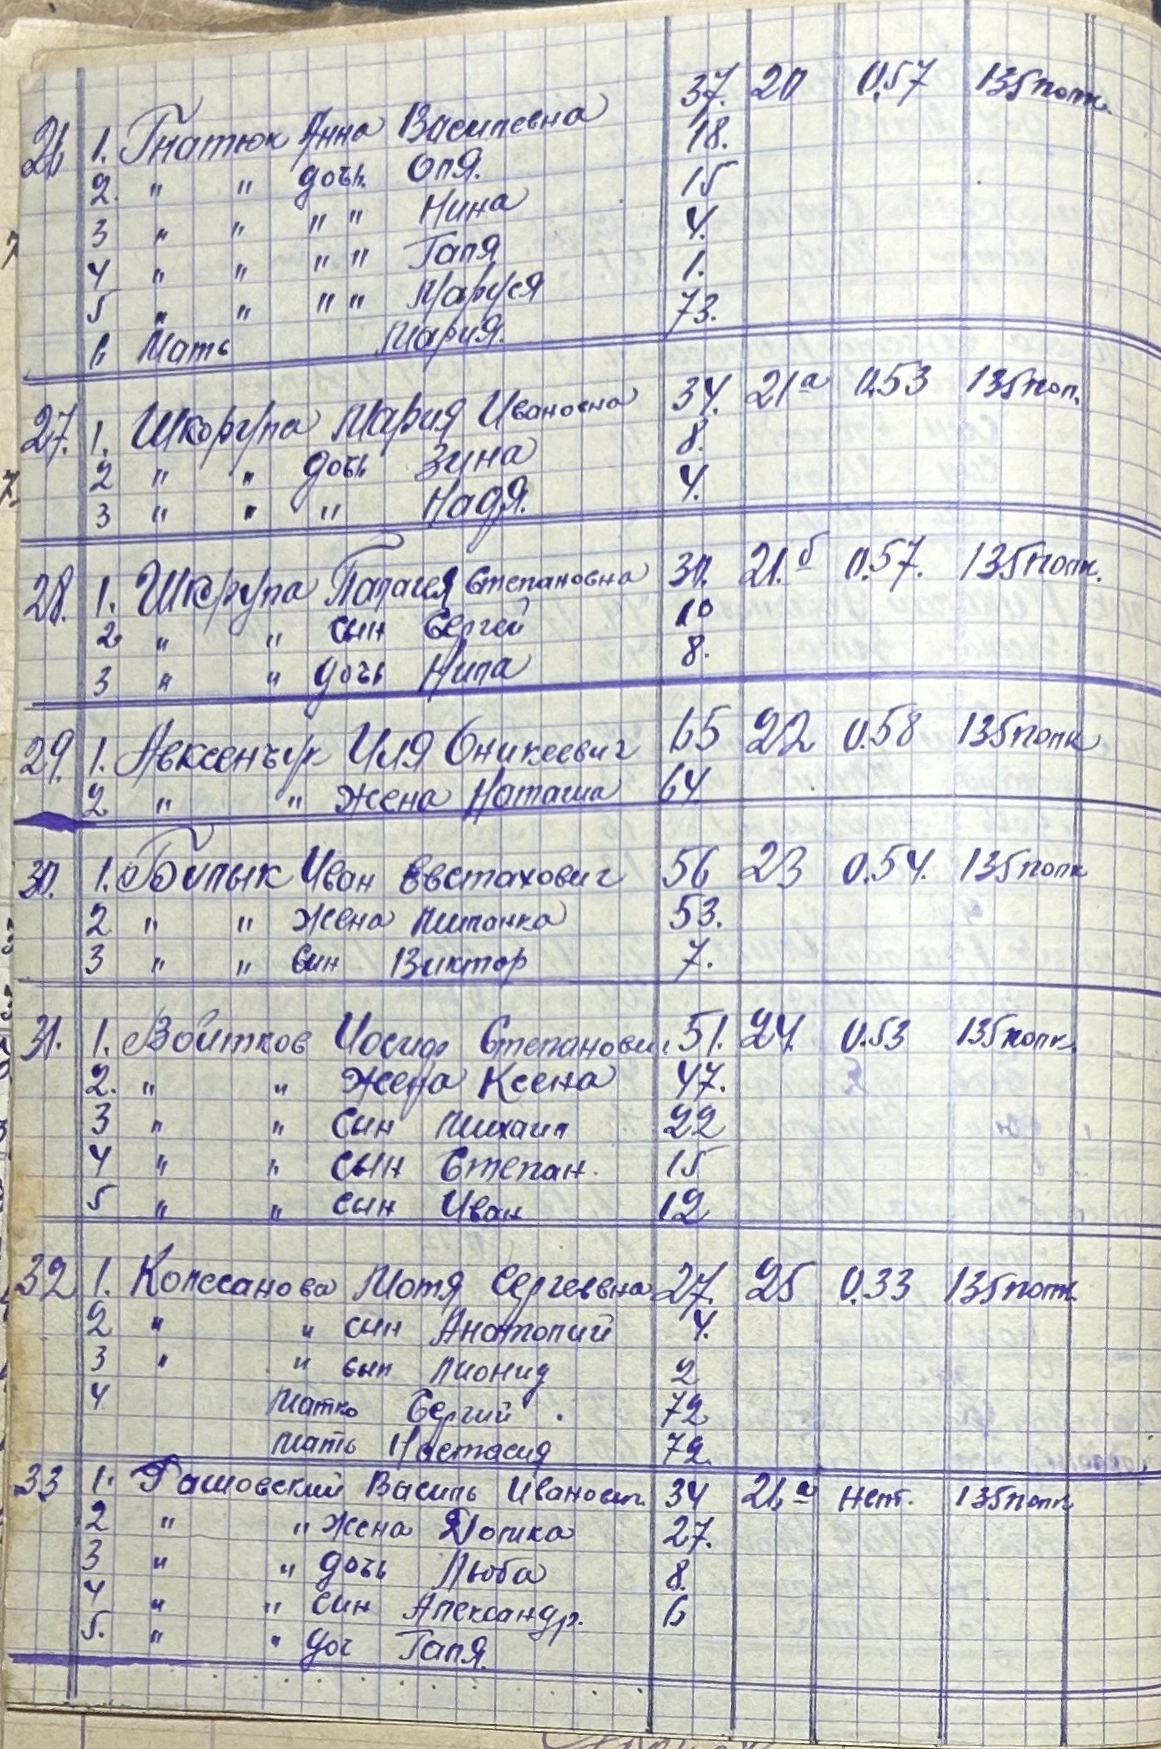 26 1. Гнатюк Анна Василевна 37. 20 0.57 135 полк.
2. " " дочь. Оля. 18.
3 " " " " Нина 15
4 " " " " Галя 4.
5 " " " " Маруся 1.
6 Мать Мария. 73.
27. 1. Шкорупа Мария Ивановна 34. 21а 0.53 135 пол.
2 " " дочь Зина 8.
3 " " " Надя. 4.
28. 1. Шкрупа Палагея Степановна 30. 21.б 0.57. 135 полк.
2 " " сын Сергей 10
3 " " дочь Нила 8.
29. 1. Авксенчук Иля Оникеевич 65 22 0.58 135 полк
2 " " жена Наташа 64.
30. 1. Билык Иван Евстахович 56 23 0.54. 135 полк
2 " " жена Миланка 53.
3 " " син Виктор 7.
31. 1. Войтков Иосиф Степанович 51. 24. 0.53 135 полк.
2. " " жена Ксена 47.
3 " " син Михаил 22
4 " " сын Степан. 15
5 " " син Иван 12
32 1. Колесанова Мотя Сергеевна 27. 25 0.33 135 полк
2 " " син Анатолий 4.
3 " " син Лионид 2
4 Сергий 72
мать Настасия 72
33 1. Гашовский Василь Иванович. 34 21.а нет. 135 полк
2 " " жена Домка 27.
3 " " дочь Люба 8.
4 " " син Александр. 6
5. " " доч Галя.